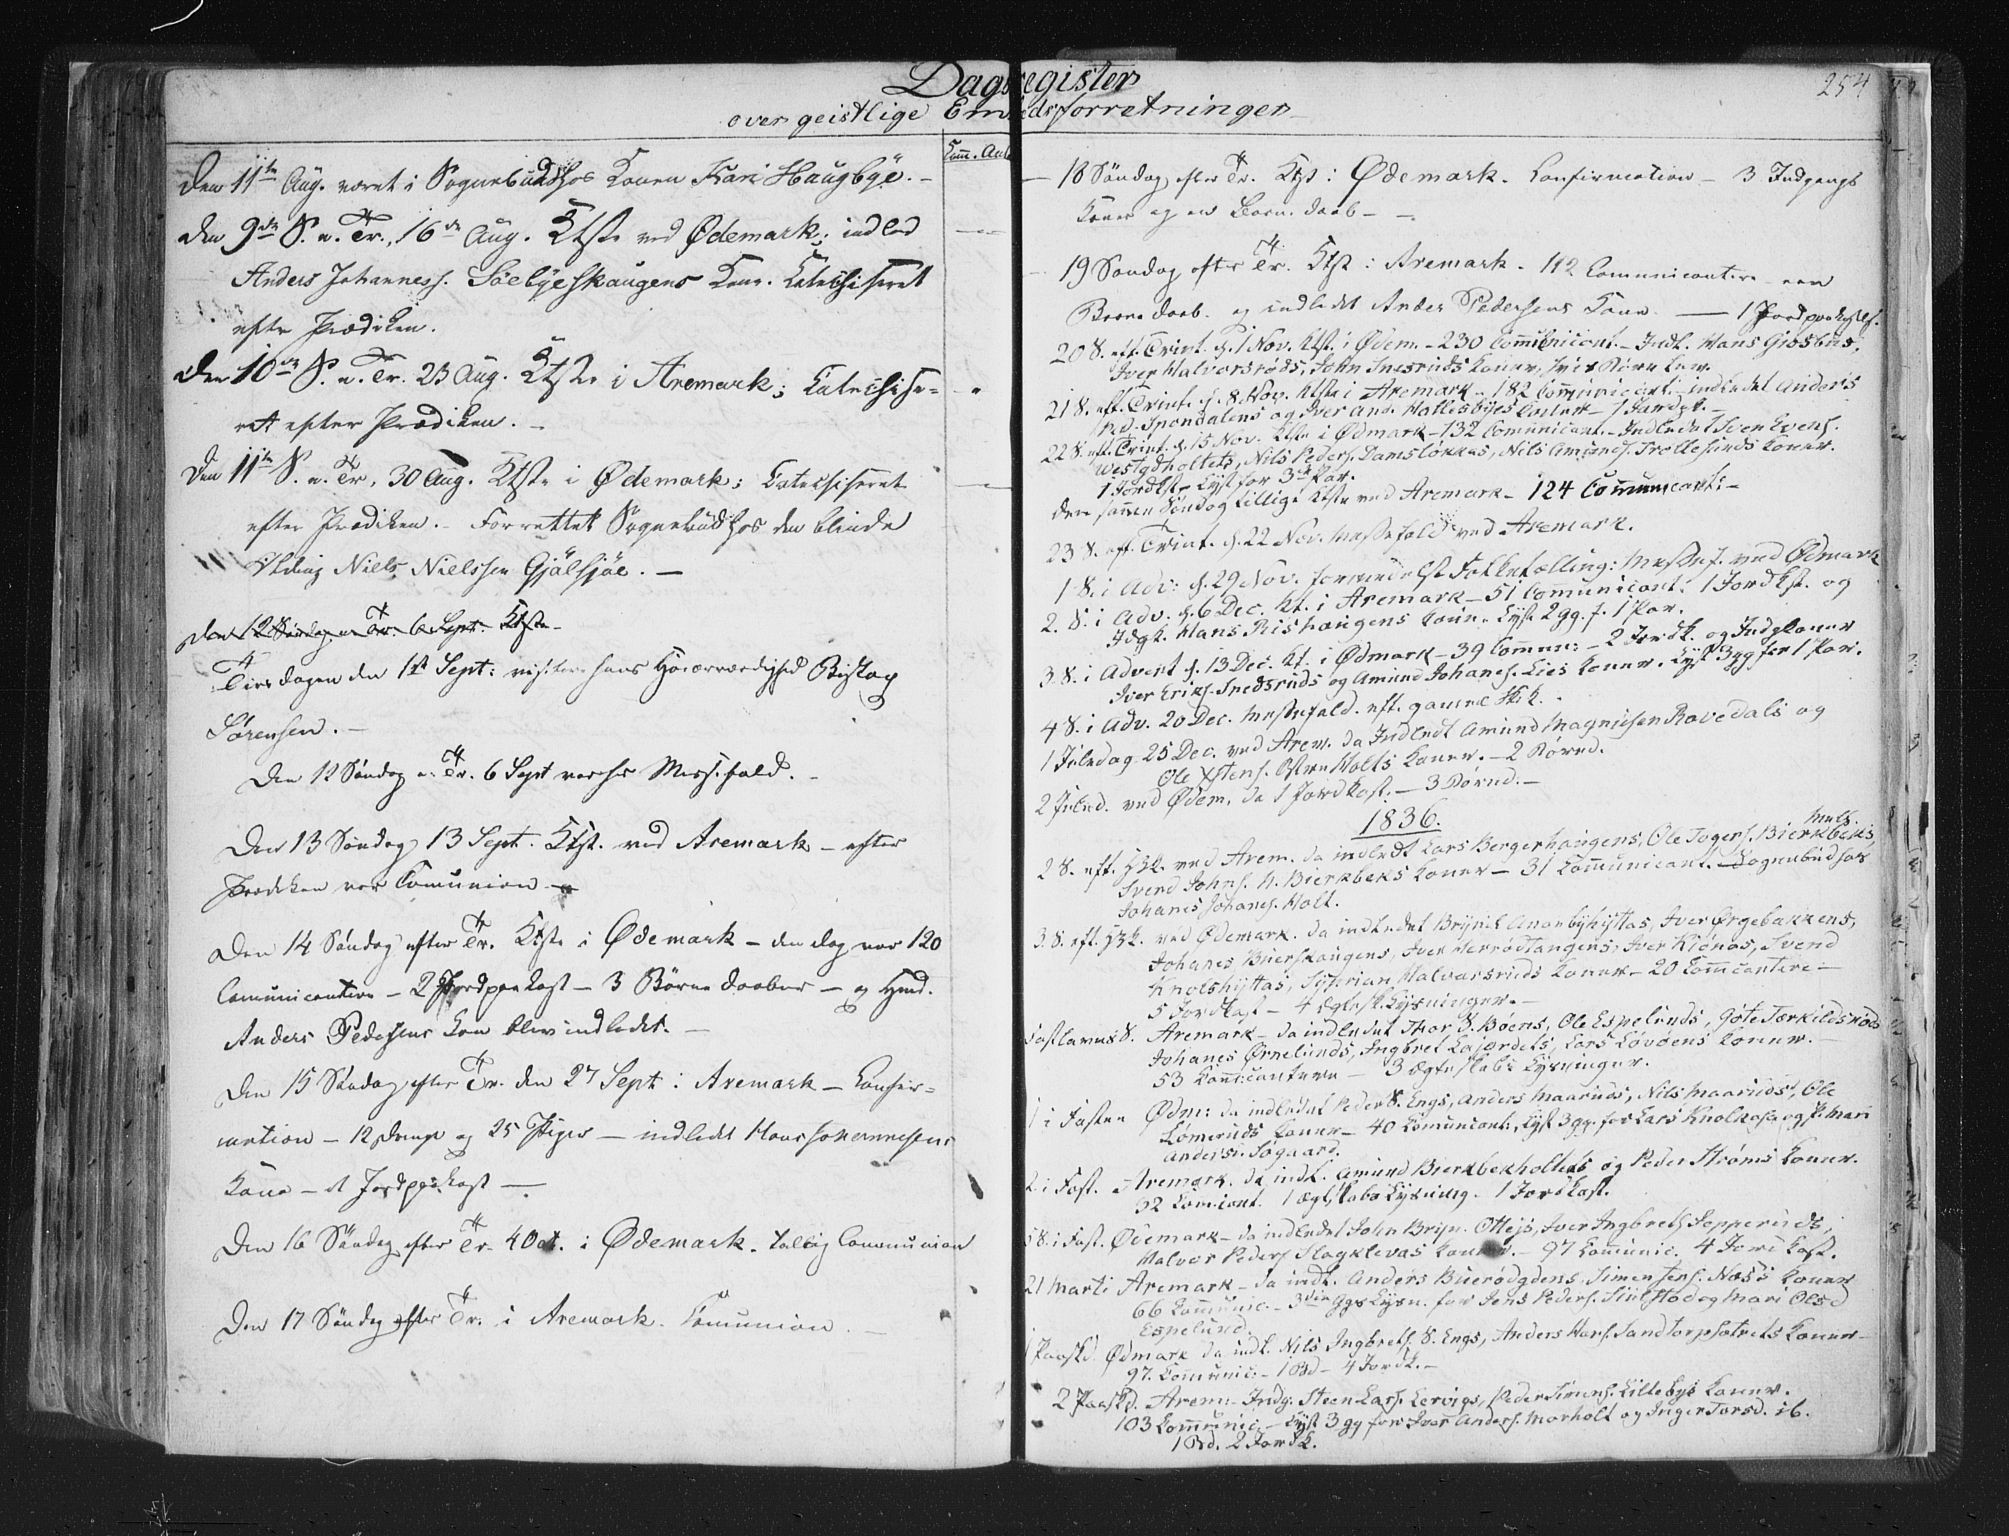 Dagsregister
over geistlige Embedsforretninger
254
Comm. Ant.
Den 11te Aug. været i Sognebud hos Konen Kari Haugbye. –
Den 9de S. e. Tr., 16de Aug. Ktste ved Ødemark; indled
Anders Johanness. Söebyeskaugens Kone. Katechiseret
efter Prædiken.
Den 10de S. e. Tr. 23 Aug. Ktste i Aremark; Katechise-
ret efter Prædiken. –
Den 11te S. e. Tr. 30 Aug. Ktste i Ødemark; Catechiseret
efter Prædiken. – Forrettet Sognebud hos den blinde
Niels Nielssen Gjölsjöe. –
Den 12 Søndag e. Tr. 6 Sept. Ktste
Tirsdagen den 1st Sept: hans Høiærværdighed Biskop
Sørensen. –
Den 12 Søndag e. Tr. 6 Sept var her Messefald. –
Den 13 Søndag 13 Sept. Ktst. ved Aremark – efter
Prædiken var Comunion –
Den 14 Søndag efter Tr. Ktste i Ødemark – den dag var 120
Comunicantere – 2 Jordpaakast – 3 Børne Daaber – og
Anders Pedersens Kone blev indledet. –
Den 15 Søndag efter Tr. den 27 Sept i Aremark – Confir-
mation – 12 Drenge og 25 Piger – indledt Hans Johannesens
Kone – et Jordpaakast –
Den 16 Søndag efter Tr. 4 Oct. i Ødemark. Comunion
Den 17 Søndag efter Tr. i Aremark. Comunion. –
– 18 Søndag efter Tr. Ktst i Ødemark. Confirmation – 3 Indgangs
Koner og en Barne daab – –
– 19 Søndag efter Tr. Ktst i Aremark – 112 Comunicantere – een
Barne daab. og indledt Anders Pedersens Kone – 1 Jordpaakast.
20 S. eft. Trint. d. 1 Nov. Ktst. i Ødem. – 230 Communicant. – Indl. Hans
Iver Halvorsröds, John Snesruds Koner,
21 S. eft. Trint. d. 8. Nov. Ktste i Aremark – 182 Communicant. – indledet Anders
Spondalens og Iver And. Kollesbyes Koner – 1 Jordpk. –
22 S. eft. Trint. d. 15 Nov. Ktste i Ødmark – 132 Communicant. – Indledet Sven Evens.
Westgdholtets, Nils Peders. Damsløkkas, Nils Amunds. Trollesunds Koner.
1 Jordkst – Lyst for 3de Par.
den samme Søndag tillige Ktste ved Aremark – 124 Communicant: –
23 S. eft. Trint. d. 22 Nov. Messefald ved Aremark.
1 S. i Adv: d. 29 Nov. formedelst Folketælling: Messef. ved Ødmark
2. S. i Adv. d. 6 Dec. Kt. i Aremark – 51 Communicant. 1 Jordkst. og
Idgk. Hans Rishaugens Kone. Lyst 2 gg. f. 1 Par.
3 S. i Advent d. 13 Dec. Kt. i Ødmark – 39 Commun: – 2 Jordk. og Indgkoner
Iver Eriks. Snedsruds og Amund Johanes. Lies Koner. Lyst 3 gg for 1 Par.
4 S. i Adv. 20 Dec. Messefald. eft. gamel Skik.
1 Juledag 25 Dec. ved Arem. da Indledt Amund Magnusen Bovedals og
Ole Østens. Østre Holts Koner. – 2 Børnd.
2 Juled. ved Ødem. da 1 Jordkast. – 3 Børnd. –
1836.
2 S. eft. H3k. ved Arem. da indledt Lars Bergerhaugens, Ole Togers. Bierkbeks,
Svend Johns. N. Bierkbeks Koner – 31 Communicant. – Sognebud hos
Johanes Johanes. Holt.
3 S. eft. H3k. ved Ødemark. da indledet Brynil Ananbyhyttas, Iver Ørgebakkens,
Johanes Buerskaugens, Iver Herrødtangens, Iver Kiönas, Svend
Knolshyttas, Syverian Halvorsruds Koner – 20 Comcantere –
5 Jordkast – 4 Egtesk. Lysninger. –
Fastlavns S. Aremark – da indledet Thor S. Böens, Ole Espelunds, Göte Torkildsröds
Johanes Ørnelunds, Ingbret Lajordets, Lars Lövöens Koner. –
53 Comcantere – 3 Ægteskabs Lysninger.
1 i Fasten Ødm: da indledet Peder S. Engs, Anders Maaruds, Nils Maaruds, Ole
Lömeruds Koner – 40 Comunicant:, Lyst 3 gg. for Lars Knolkasa og P. Mari
Andersd. Søgaard.
2 i Fast. – Aremark. da indl. Amund Bierkbekholtets og Peder Ströms Koner.
32 Comicant. 1 Ægteskabs Lysning. 1 Jordkast.
S. i Fast. Ødemark – da indledet John Bryn. Ottejs, Iver Ingbrets. Sepperuds,
Halvor Peders. Slagklevas Koner. – 97 Comunic. 4 Jord Kast.
21 Marti Aremark – da indl. Anders Buerödgdens, Simen Jens. Næss Koner
66 Communic. – 3die Ggs Lysn. for Jens Peders. og Mari Olsd
Espelund.
1 Paaskd. Ødmark da indl. Nils Ingbrets. S. Engs, Anders Hars. Sandtorpsætrets Koner –
97. Comunic. – 1 Bd – 4 Jordk. –
2 Paaskd. Arem: – Indg. Steen Lars. Lervigs, Peder Simens. Lillebys Koner.
103 Communic. – Lyst 3 gg for Iver Anders. Morholt og Inger Torsd. ib.
1 Bd. 2 Jordk.